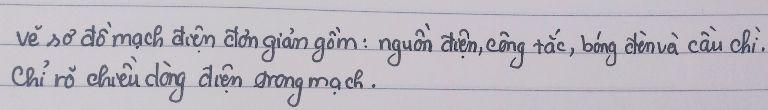 vẽ sơ đồ mạch điện đơn giản gồm: nguồn điện, công tắc, bóng đèn và cầu chì.
Chỉ rõ chiều dòng điện trong mạch.